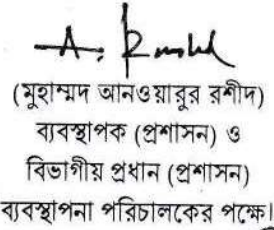 (মুহাম্মদ আনওয়ারুর রশীদ)
ব্যবস্থাপক (প্রশাসন) ও
বিভাগীয় প্রধান (প্রশাসন)
ব্যবস্থাপনা পরিচালকের পক্ষে।